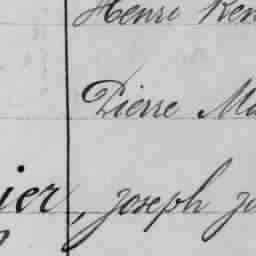 Henri Ren
Pierre Ma
ier, joseph jo